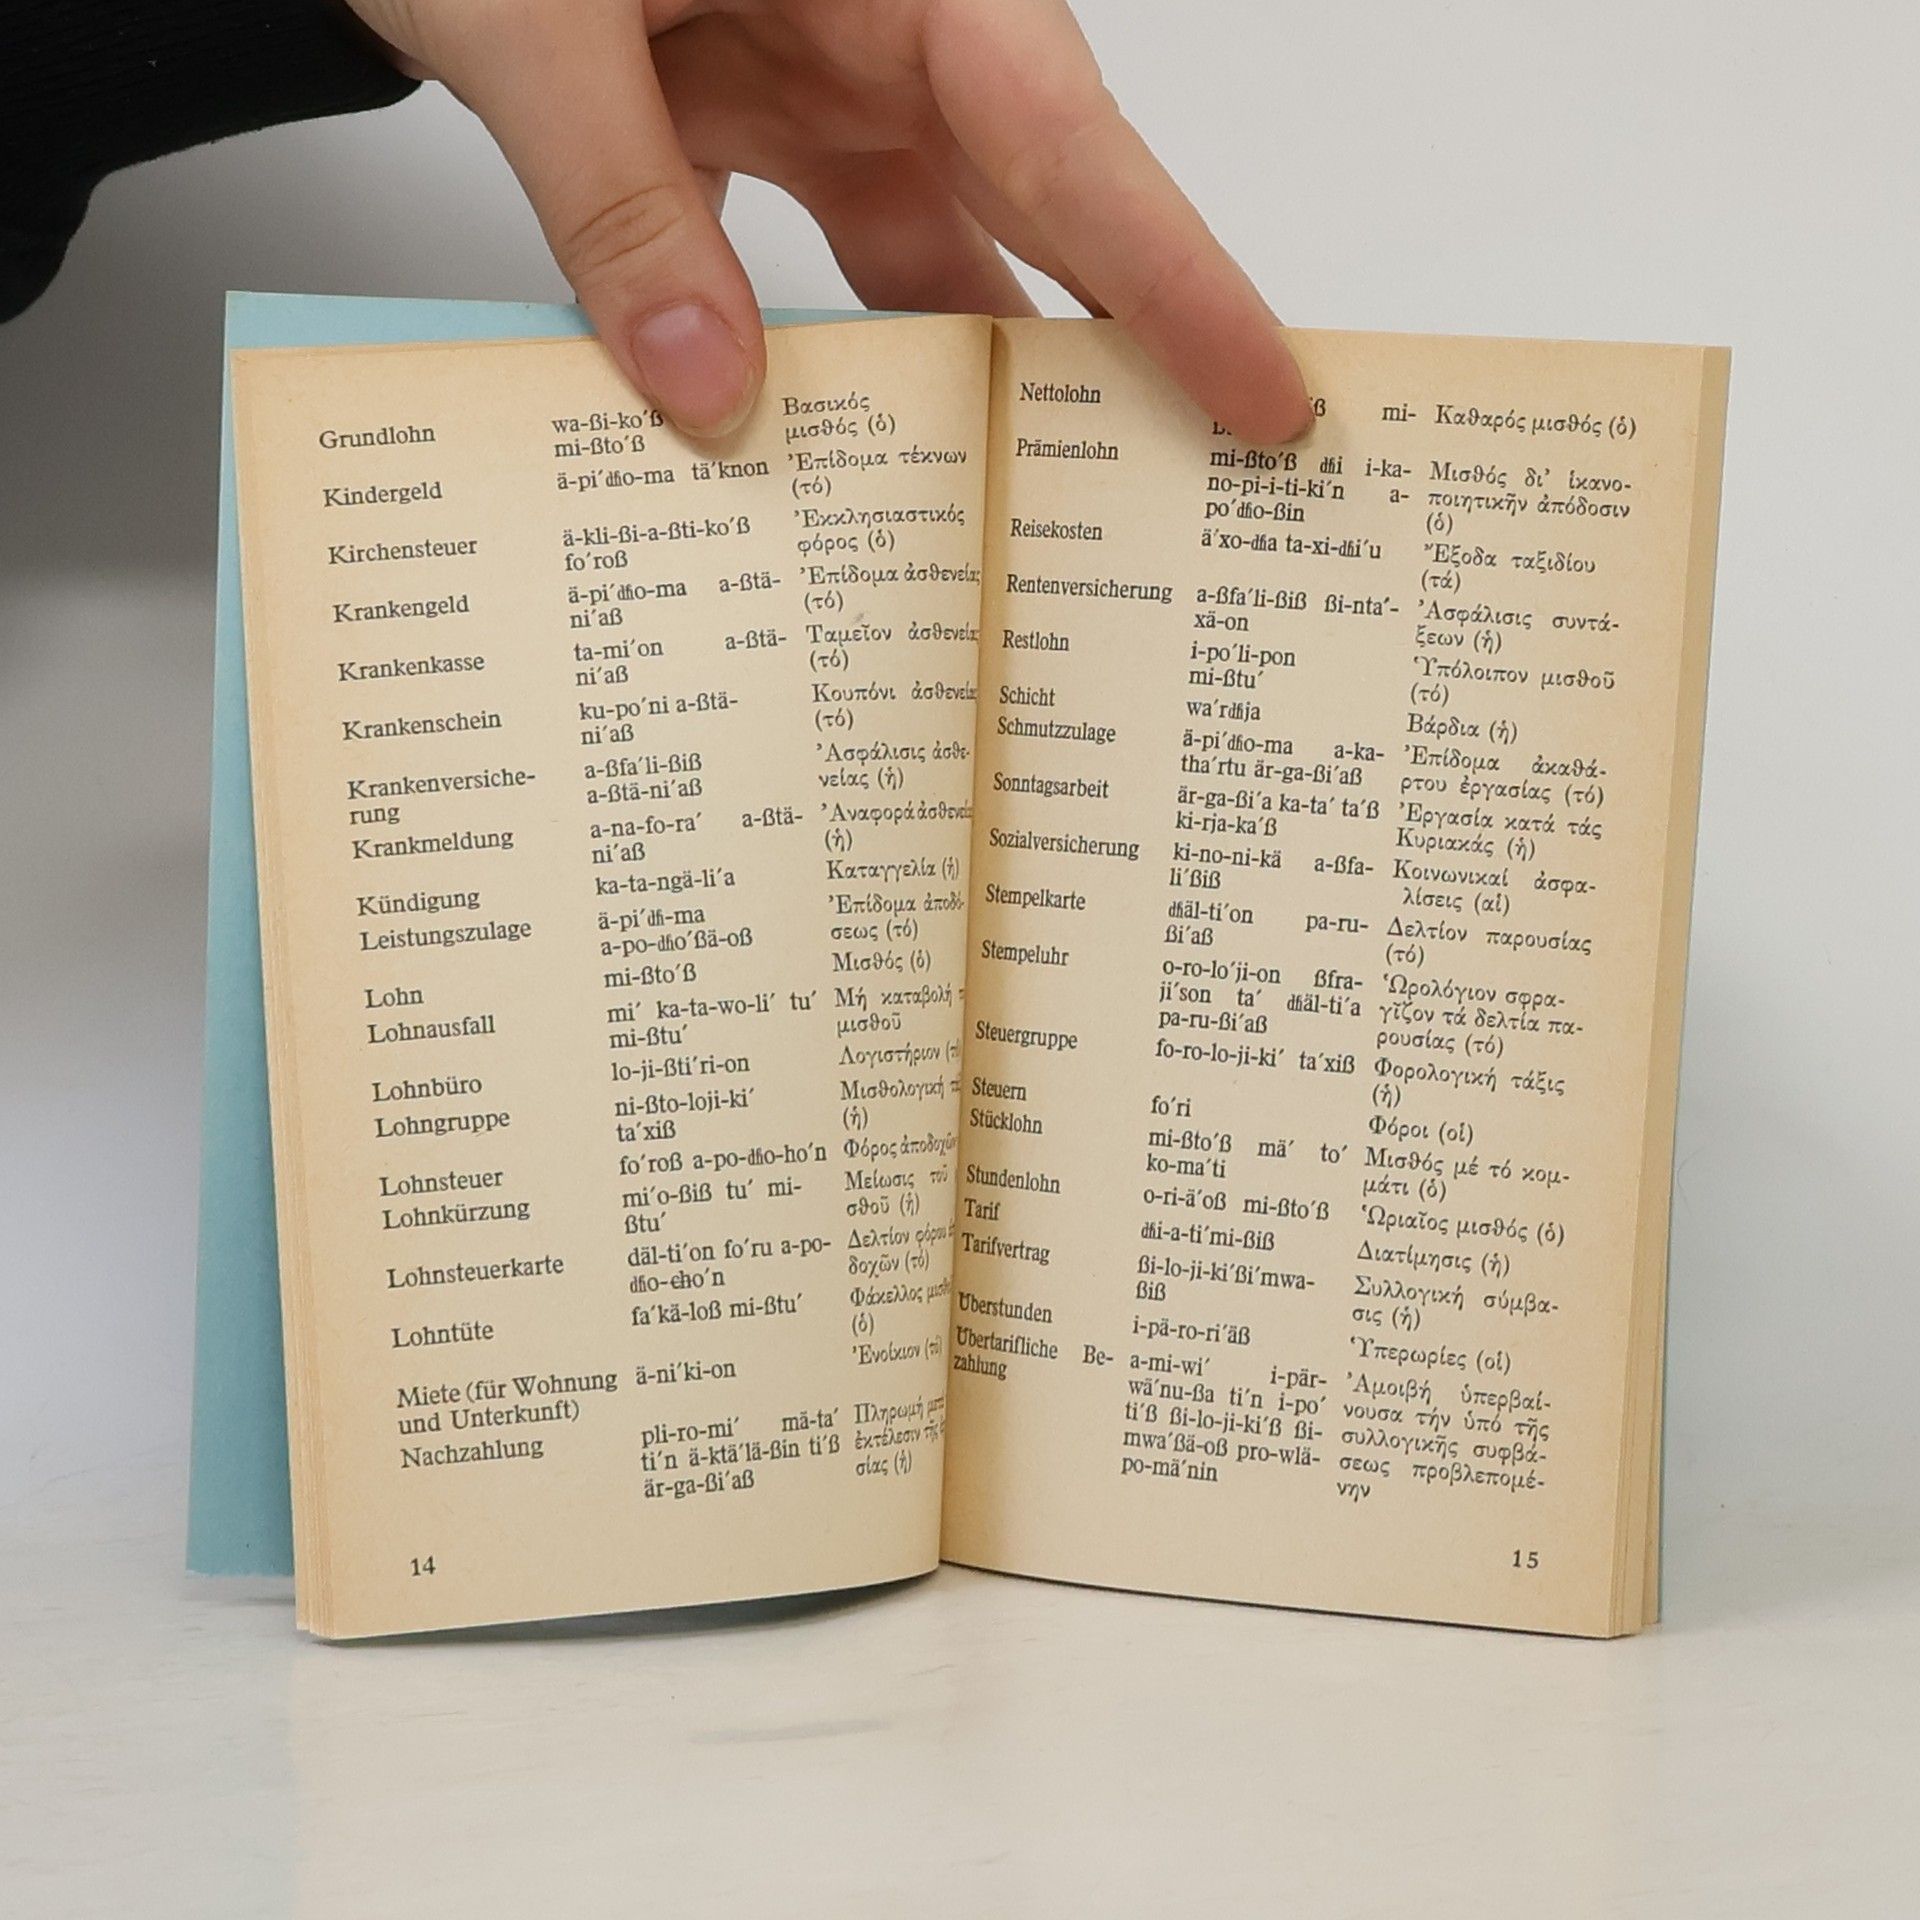 Grundlohn wa-ßi-ko′ß Βασικός
mi-ßto′ß μισθός (ὁ)
Kindergeld ä-pi′dho-ma tä′knon Ἐπίδομα τέκνων
(τό)
Kirchensteuer ä-kli-ßi-a-ßti-ko′ß Ἐκκλησιαστικός
fo′roß φόρος (ὁ)
Krankengeld ä-pi′dho-ma a-ßtä- Ἐπίδομα ἀσθενείας
ni′aß (τό)
Krankenkasse ta-mi′on a-ßtä- Ταμεῖον ἀσθενείας
ni′aß (τό)
Krankenschein ku-po′ni a-ßtä- Κουπόνι ἀσθενείας
ni′aß (τό)
Krankenversiche- a-ßfa′li-ßiß Ἀσφάλισις ἀσθε-
rung a-ßtä-ni′aß νείας (ἡ)
Krankmeldung a-na-fo-ra′ a-ßtä- Ἀναφορά ἀσθενείας
ni′aß (ἡ)
Kündigung ka-ta-ngä-li′a Καταγγελία (ἡ)
Leistungszulage ä-pi′dh-ma Ἐπίδομα ἀποδό-
a-po-dho′ßä-oß σεως (τό)
Lohn mi-ßto′ß Μισθός (ὁ)
Lohnausfall mi′ ka-ta-wo-li′ tu′ Μή καταβολή
mi-ßtu′ μισθοῦ
Lohnbüro lo-ji-ßti′ri-on Λογιστήριον
Lohngruppe ni-ßto-loji-ki′ Μισθολογική
ta′xiß (ἡ)
Lohnsteuer fo′roß a-po-dho-ho′n Φόρος ἀποδοχῶν
Lohnkürzung mi′o-ßiß tu′ mi- Μείωσις τοῦ
ßtu′ σθοῦ (ἡ)
Lohnsteuerkarte däl-ti′on fo′ru a-po- Δελτίον φόρου
dho-cho′n δοχῶν (τό)
Lohntüte fa′kä-loß mi-ßtu′ Φάκελλος
(ὁ)
Miete (für Wohnung ä-ni′ki-on Ἐνοίκιον (τό)
und Unterkunft)
Nachzahlung pli-ro-mi′ mä-ta′ Πληρωμή μετά
ti′n ä-ktä′lä-ßin ti′ß ἐκτέλεσιν τῆς
är-ga-ßi′aß σίας (ἡ)
14
Nettolohn mi- Καθαρός μισθός (ὁ)
Prämienlohn mi-ßto′ß dhi i-ka- Μισθός δι' ἱκανο-
no-pi-i-ti-ki′n a- ποιητικῆν ἀπόδοσιν
po′dho-ßin (ὁ)
Reisekosten ä′xo-dha ta-xi-dhi′u Ἔξοδα ταξιδίου
(τά)
Rentenversicherung a-ßfa′li-ßiß ßi-nta′- Ἀσφάλισις συντά-
xä-on ξεων (ἡ)
Restlohn i-po′li-pon Ὑπόλοιπον μισθοῦ
mi-ßtu′ (τό)
Schicht wa′rdhja Βάρδια (ἡ)
Schmutzzulage ä-pi′dho-ma a-ka- Ἐπίδομα ἀκαθά-
tha′rtu är-ga-ßi′aß ρτου ἐργασίας (τό)
Sonntagsarbeit är-ga-ßi′a ka-ta′ ta′ß Ἐργασία κατά τάς
ki-rja-ka′ß Κυριακάς (ἡ)
Sozialversicherung ki-no-ni-kä a-ßfa- Κοινωνικαί ἀσφα-
li′ßiß λίσεις (αἱ)
Stempelkarte dhäl-ti′on pa-ru- Δελτίον παρουσίας
ßi′aß (τό)
Stempeluhr o-ro-lo′ji-on ßfra- Ὡρολόγιον σφρα-
ji′son ta′ dhäl-ti′a γῖζον τά δελτία πα-
pa-ru-ßi′aß ρουσίας (τό)
Steuergruppe fo-ro-lo-ji-ki′ ta′xiß Φορολογική τάξις
(ἡ)
Steuern fo′ri Φόροι (οἱ)
Stücklohn mi-ßto′ß mä′ to′ Μισθός μέ τό κομ-
ko-ma′ti μάτι (ὁ)
Stundenlohn o-ri-ä′oß mi-ßto′ß Ὡριαῖος μισθός (ὁ)
Tarif dhi-a-ti′mi-ßiß Διατίμησις (ἡ)
Tarifvertrag ßi-lo-ji-ki′ßi′mwa- Συλλογική σύμβα-
ßiß σις (ἡ)
Überstunden i-pä-ro-ri′äß Ὑπερωρίες (οἱ)
Übertarifliche Be- a-mi-wi′ i-pär- Ἀμοιβή ὑπερβαί-
zahlung wä′nu-ßa ti′n i-po′ νουσα τήν ὑπό τῆς
ti′ß ßi-lo-ji-ki′ß ßi- συλλογικῆς συφβά-
mwa′ßä-oß pro-wlä- σεως προβλεπομέ-
po-mä′nin νην
15